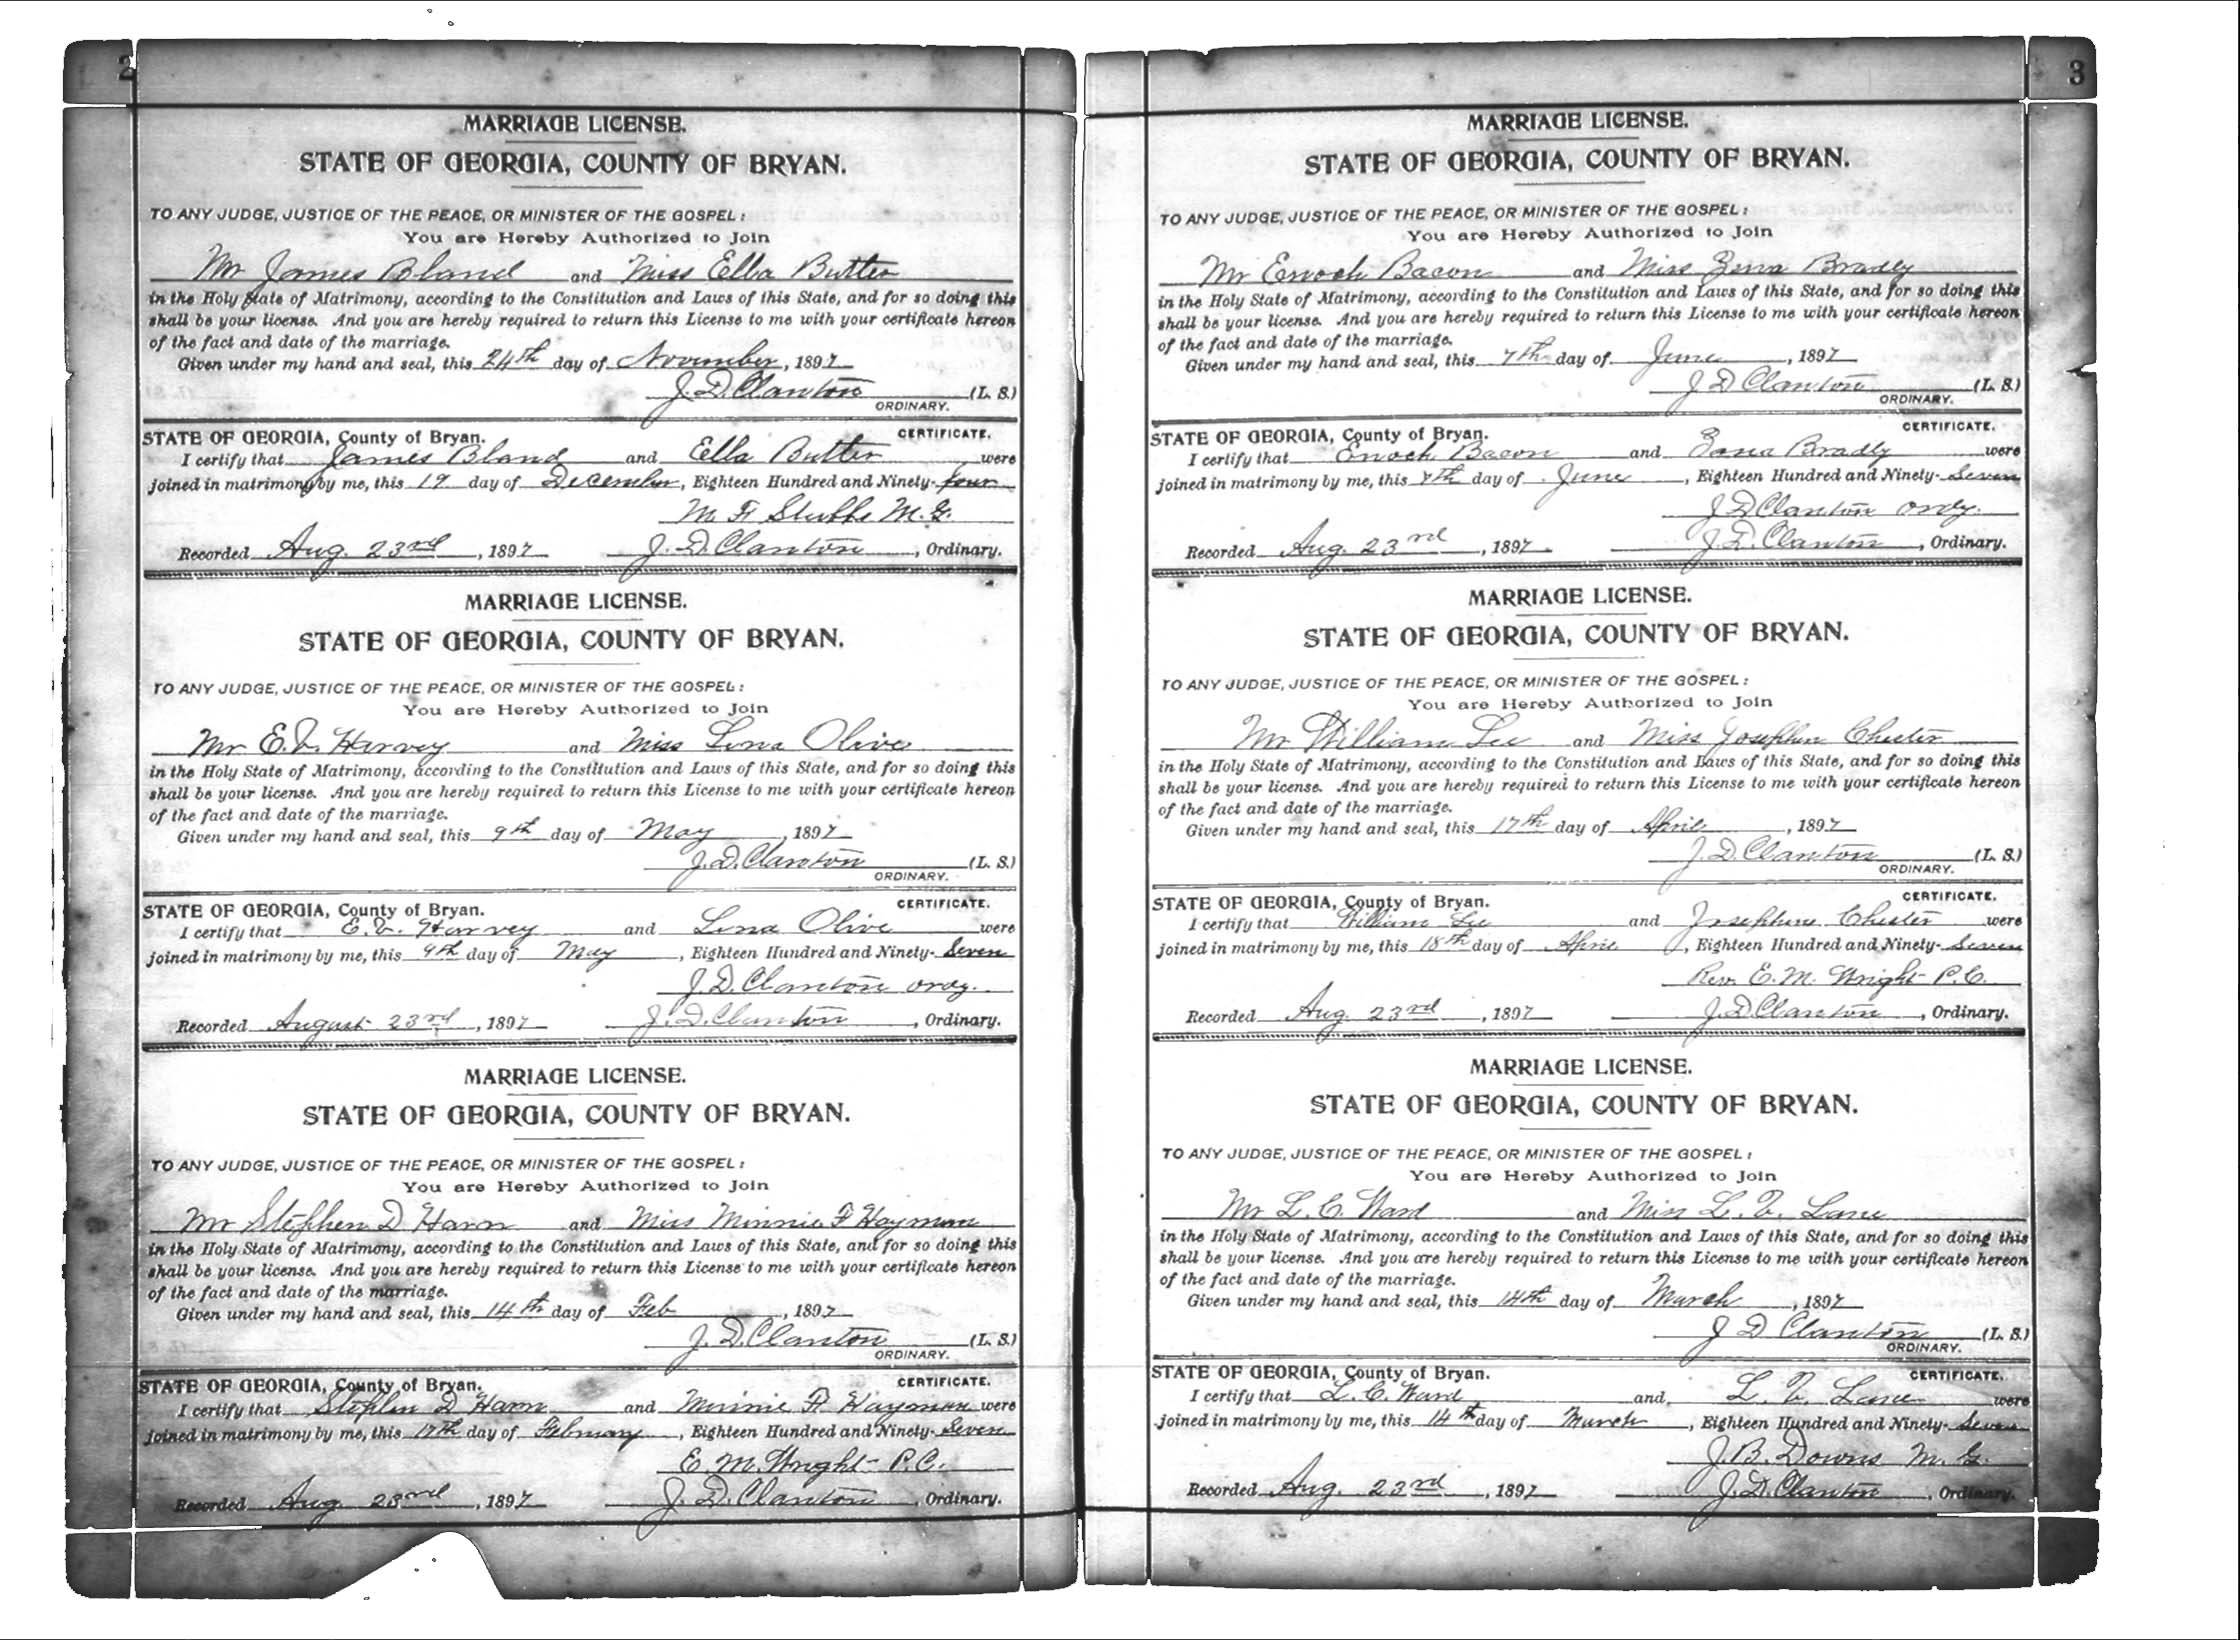 2
MARRIAGE LICENSE.
STATE OF GEORGIA, COUNTY OF BRYAN.
TO ANY JUDGE, JUSTICE OF THE PEACE, OR MINISTER OF THE GOSPEL:
You are Hereby Authorized to Join
Mr James Bland and Miss Ella Butler
in the Holy State of Matrimony, according to the Constitution and Laws of this State, and for so doing this
shall be your license. And you are hereby required to return this License to me with your certificate hereon
of the fact and date of the marriage.
Given under my hand and seal, this 24th day of November, 1897
J. D. Clanton (L. S.)
ORDINARY.
STATE OF GEORGIA, County of Bryan. CERTIFICATE.
I certify that James Bland and Ella Butler were
joined in matrimony by me, this 19 day of December, Eighteen Hundred and Ninety-four
M. F. Stubbs M. G.
Recorded Aug. 23rd, 1897 J. D. Clanton, Ordinary.
MARRIAGE LICENSE.
STATE OF GEORGIA, COUNTY OF BRYAN.
TO ANY JUDGE, JUSTICE OF THE PEACE, OR MINISTER OF THE GOSPEL:
You are Hereby Authorized to Join
Mr E. V. Harvey and Miss Lona Olive
in the Holy State of Matrimony, according to the Constitution and Laws of this State, and for so doing this
shall be your license. And you are hereby required to return this License to me with your certificate hereon
of the fact and date of the marriage.
Given under my hand and seal, this 9th day of May, 1897
J. D. Clanton (L. S.)
ORDINARY.
STATE OF GEORGIA, County of Bryan. CERTIFICATE.
I certify that E. V. Harvey and Lona Olive were
joined in matrimony by me, this 9th day of May, Eighteen Hundred and Ninety-Seven
J. D. Clanton ordy.
Recorded August 23rd, 1897 J. D. Clanton, Ordinary.
MARRIAGE LICENSE.
STATE OF GEORGIA, COUNTY OF BRYAN.
TO ANY JUDGE, JUSTICE OF THE PEACE, OR MINISTER OF THE GOSPEL:
You are Hereby Authorized to Join
Mr Stephen D Harn and Miss Minnie F Hayman
in the Holy State of Matrimony, according to the Constitution and Laws of this State, and for so doing this
shall be your license. And you are hereby required to return this License to me with your certificate hereon
of the fact and date of the marriage.
Given under my hand and seal, this 14th day of Feb, 1897
J. D. Clanton (L. S.)
ORDINARY.
STATE OF GEORGIA, County of Bryan. CERTIFICATE.
I certify that Stephen D Harn and Minnie F. Hayman were
joined in matrimony by me, this 17th day of February, Eighteen Hundred and Ninety-Seven
E. M. Wright P.C.
Recorded Aug. 23rd, 1897 J. D. Clanton, Ordinary.
3
MARRIAGE LICENSE.
STATE OF GEORGIA, COUNTY OF BRYAN.
TO ANY JUDGE, JUSTICE OF THE PEACE, OR MINISTER OF THE GOSPEL:
You are Hereby Authorized to Join
Mr Enoch Bacon and Miss Bradly
in the Holy State of Matrimony, according to the Constitution and Laws of this State, and for so doing this
shall be your license. And you are hereby required to return this License to me with your certificate hereon
of the fact and date of the marriage.
Given under my hand and seal, this 7th day of June, 1897
J D Clanton (L. S.)
ORDINARY.
STATE OF GEORGIA, County of Bryan. CERTIFICATE.
I certify that Enoch Bacon and Bradly were
joined in matrimony by me, this 7th day of June, Eighteen Hundred and Ninety-Seven
J D Clanton ordy.
Recorded Aug. 23rd, 1897. J. D. Clanton, Ordinary.
MARRIAGE LICENSE.
STATE OF GEORGIA, COUNTY OF BRYAN.
TO ANY JUDGE, JUSTICE OF THE PEACE, OR MINISTER OF THE GOSPEL:
You are Hereby Authorized to Join
Mr William Lee and Miss Josephine Chester
in the Holy State of Matrimony, according to the Constitution and Laws of this State, and for so doing this
shall be your license. And you are hereby required to return this License to me with your certificate hereon
of the fact and date of the marriage.
Given under my hand and seal, this 17th day of April, 1897
J. D. Clanton (L. S.)
ORDINARY.
STATE OF GEORGIA, County of Bryan. CERTIFICATE.
I certify that William Lee and Josephine Chester were
joined in matrimony by me, this 18th day of April, Eighteen Hundred and Ninety-Seven
Rev. E. M. Wright P.C.
Recorded Aug. 23rd, 1897 J. D. Clanton, Ordinary.
MARRIAGE LICENSE.
STATE OF GEORGIA, COUNTY OF BRYAN.
TO ANY JUDGE, JUSTICE OF THE PEACE, OR MINISTER OF THE GOSPEL:
You are Hereby Authorized to Join
Mr L. C. Ward and Miss L. V. Lane
in the Holy State of Matrimony, according to the Constitution and Laws of this State, and for so doing this
shall be your license. And you are hereby required to return this License to me with your certificate hereon
of the fact and date of the marriage.
Given under my hand and seal, this 14th day of March, 1897
J D Clanton (L. S.)
ORDINARY.
STATE OF GEORGIA, County of Bryan. CERTIFICATE.
I certify that L. C. Ward and L. V. Lane were
joined in matrimony by me, this 14th day of March, Eighteen Hundred and Ninety-Seven
J. B. Downs M. G.
Recorded Aug. 23rd, 1897 J. D. Clanton, Ordinary.